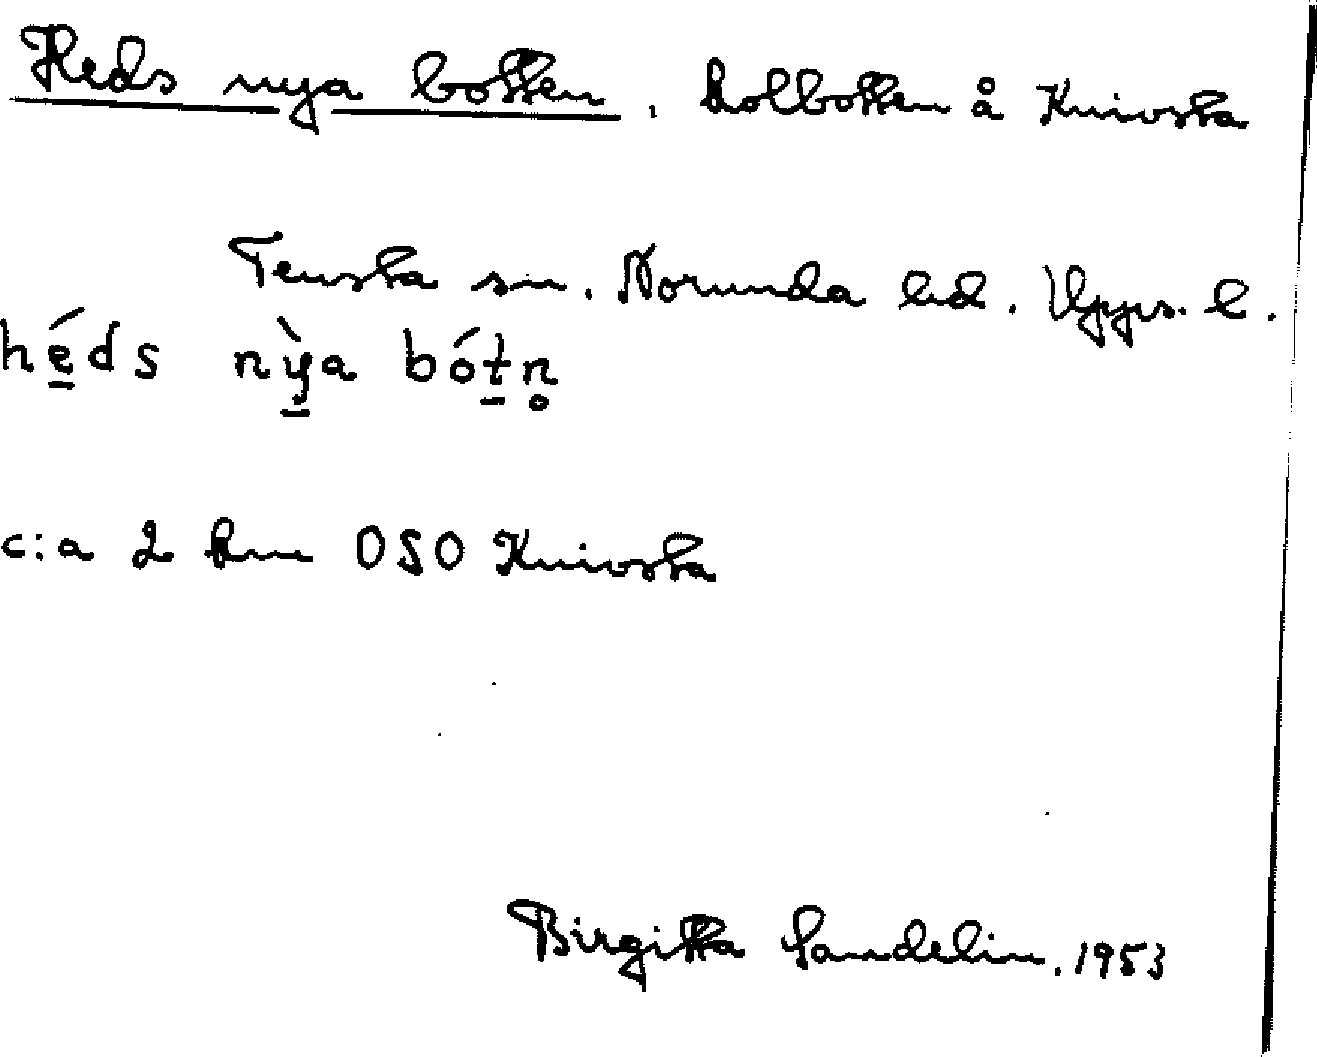 Heds nya botten, kolbotten å Knivsta
Tensta sn. Norunda hd. Upps. l.
hé̱ds nỳ̱a bót̠n̥
c:a 2 km OSO Knivsta
Birgitta Sandelin, 1953